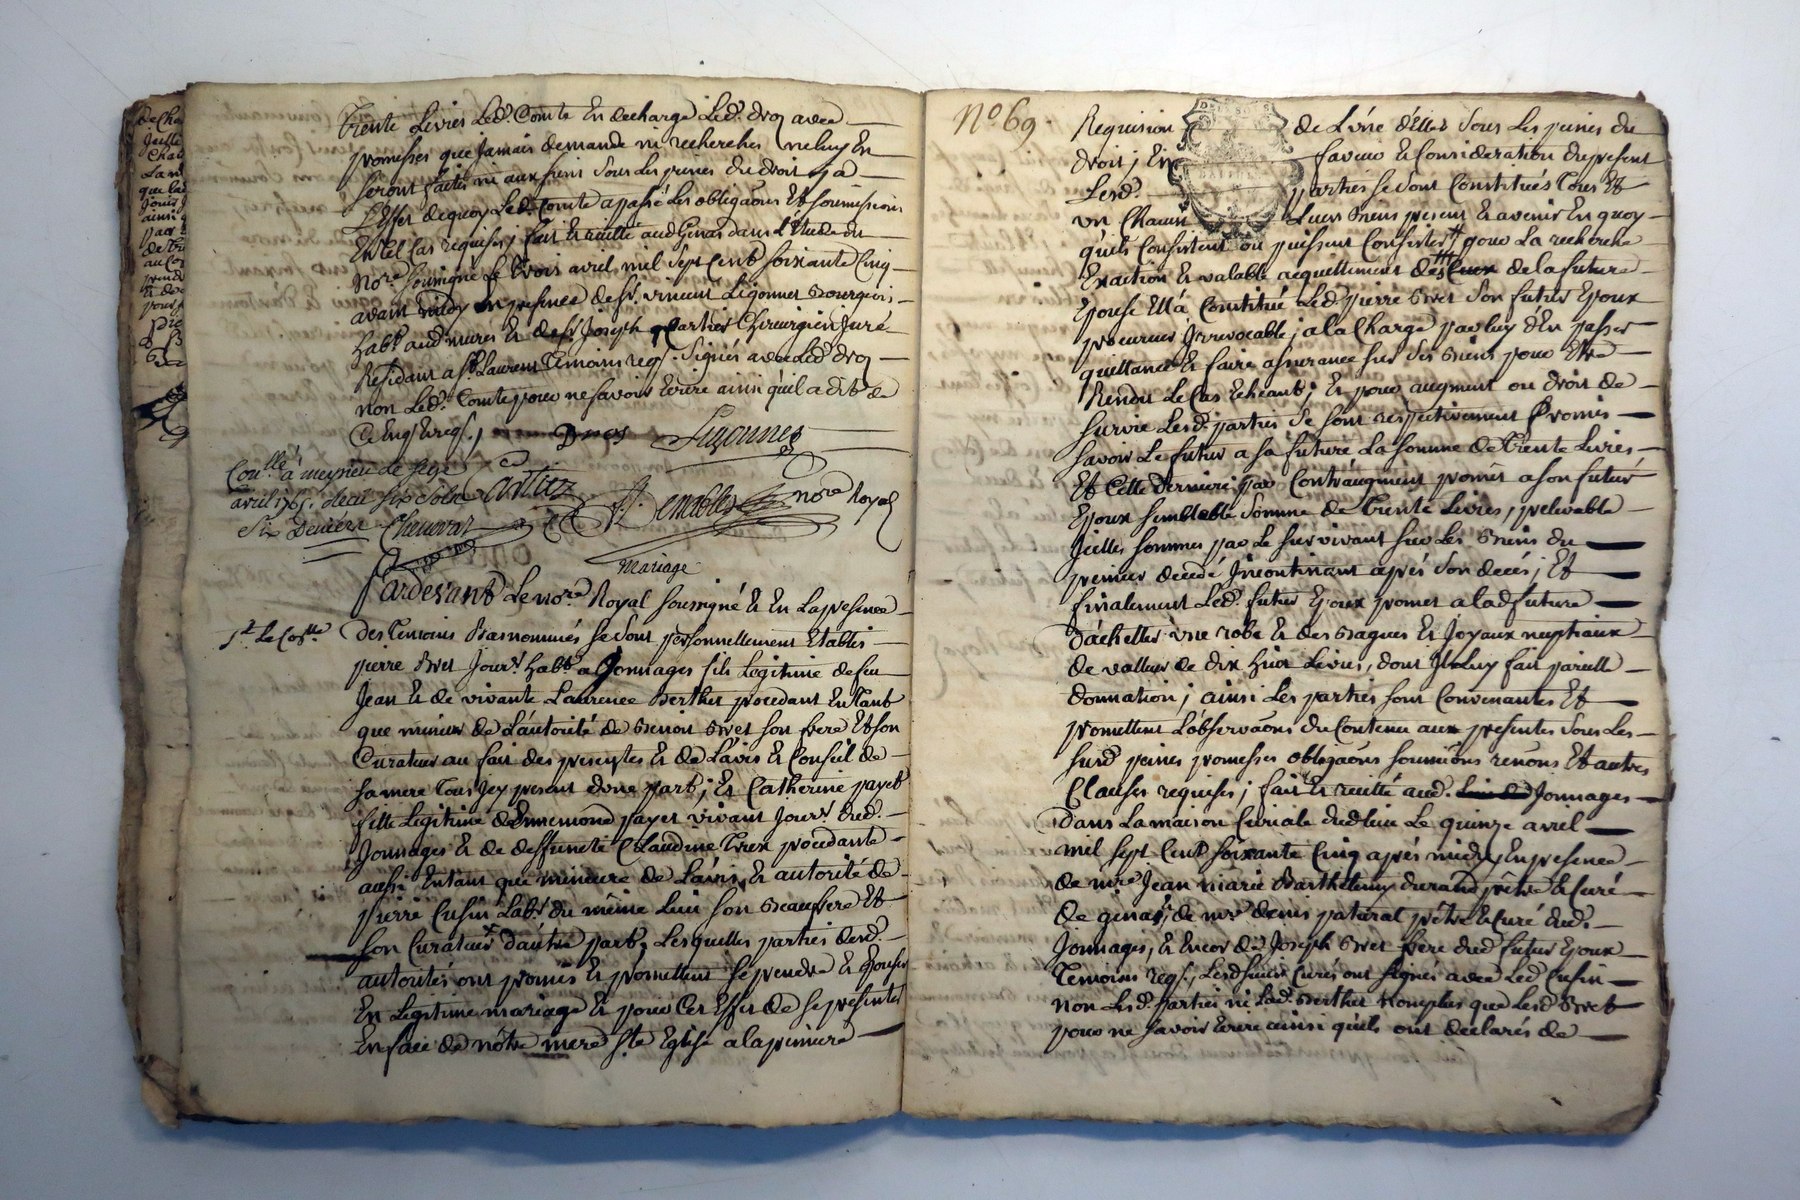 trente Livres Led. Comte En decharge Led. Droz avec
promesses que Jamais demande ni recherches ne luy En
seront faites ni aux siens Sous Les peines du droit, Et a
L'effet dequoy Led. Comte a passé Les obligaons Et soumissions
En tel Cas requises, fait Et recitté aud Genas dans L'Etude du
no.re Soussigné Le trois avril mil Sept Cent soixante Cinq
avant midy En presence de Sr. vincent Ligonnet Bourgeois
hab.t aud mures Et de Sr Joseph Cartier Chirurgien Juré
Residant a St. Laurent temoins req.s Signés avec Led Droz
non Led. Comte pour ne savoir Ecrire ainsi quil a dit de
Ce Enq Et req.s
Ligonnet
Con.llé à meyzieu le
avril 1765 / Recu six sols
Six Deniers Cartier
nore Royal
Mariage
Pardevant Le no.re Royal soussigné Et En La presence
1.e Le Con.lle
Des temoins Basnommés Se sont personnellement Etablis
pierre Bret Jour.r hab.t a Jonnages fils Legitime de feu
Jean Et de vivante Laurence Berthet procedant En tant
que mineur de L'autorité de Benoit Bret son frere Et son
Curateur au fait des presentes Et de L'avis Et Conseil de
sa mere tous Icy present d'une part; Et Catherine payet
fille Legitime d'Ennemond payet vivant Jour.r dud.
Jonnages Et de deffuncte Claudine procedante
aussi Entant que mineure de L'avis Et autorité de
pierre Cusin Lab.r du même Lieu son Beaufrere Et
son Curateur d'autre part, Lesquelles parties desd.
autorités ont promis Et promettent se prendre Et Epouser
En Legitime mariage Et pour Cet Effet de se presenter
En face de nôtre mere Ste Eglise a la premiere
No 69.
Requision de L'une d'Elles Sous Les peines du
droit; En faveur Et Consideration du present
Lesd parties se sont Constitués tous Et
un Chacun Leurs Biens present Et avenir En quoy
qu'ils Consistent ou puissent Consister pour La recherche
Exaction Et valable acquittement de la future
Epouse Ell'a Constitué Led. pierre Bret son futur Epoux
procureur Irrevocable; a la Charge par luy d'En passer
quittance Et faire assurance sur Ses Biens pour Etre
Rendu Le Cas Echeant; Et pour augment ou droit de
survie Lesd. parties Se sont respectivement Promis
savoir Le futur a sa future La somme de trente Livres
Et Cette derniere par Contraugment promet a son futur
Epoux semblable Somme de trente Livres, prelevable
Icelles sommes par Le survivant sur Les Biens du
premier decedé Incontinant après son decès; Et
finalement Led. futur Epoux promet a lad future
d'achetter une robe Et des Bagues Et Joyaux nuptiaux
de valleur de dix huit Livres, dont Il Luy fait pareille
donnation; ainsi Les parties sont Convenantes Et
promettent L'observaons du Contenu aux presentes Sous Les
susd peines promesses obligaons soumiòns renons Et autres
Clauses requises; fait Et recitté aud. Jonnages
Dans La maison Curiale dud lieu Le quinze avril
mil sept Cent soixante Cinq après midy En presence
de m.re Jean marie Barthelemy durand prêtre Et Curé
de genas, de m.re denis patural prêtre Et Curé dud.
Jonnages, Et Encor de Joseph Bret frere dud futur Epoux
temoins req.s, Lesd Sieurs Curés ont Signés avec Led Cusin
non Lesd. parties ni Lad. Berthet nomplus que Lesd Bret
pour ne savoir Ecrire ainsi qu'ils ont declarés de